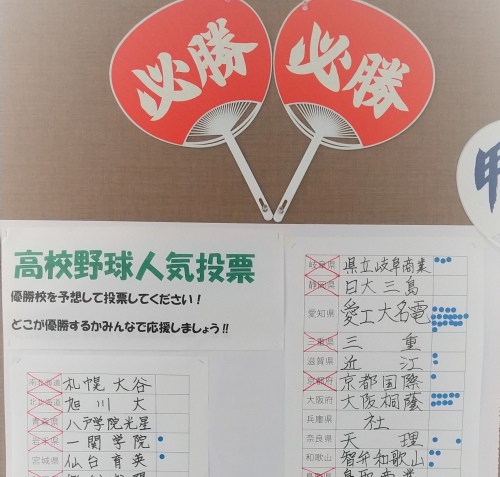 必勝
必勝
甲
高校野球人気投票
優勝校を予想して投票してください！
どこが優勝するかみんなで応援しましょう!!
南北海道 札幌大谷
北北海道 旭川大
青森県 八戸学院光星
岩手県 一関学院
宮城県 仙台育英
岐阜県 県立岐阜商業
静岡県 日大三島
愛知県 愛工大名電
三重県 三重
滋賀県 近江
京都府 京都国際
大阪府 大阪桐蔭
兵庫県 社
奈良県 天理
和歌山 智弁和歌山
鳥取県 鳥取商業